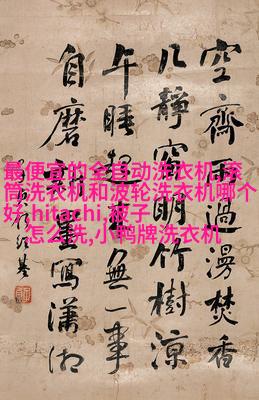 空齋雨過漫焚香
几靜窗明竹樹涼
午睡起無一事
自磨寫瀟湘
最便宜的全自动洗衣机,滚
筒洗衣机和波轮洗衣机哪个
好,hitachi,被子
怎么洗,小鸭牌洗衣机